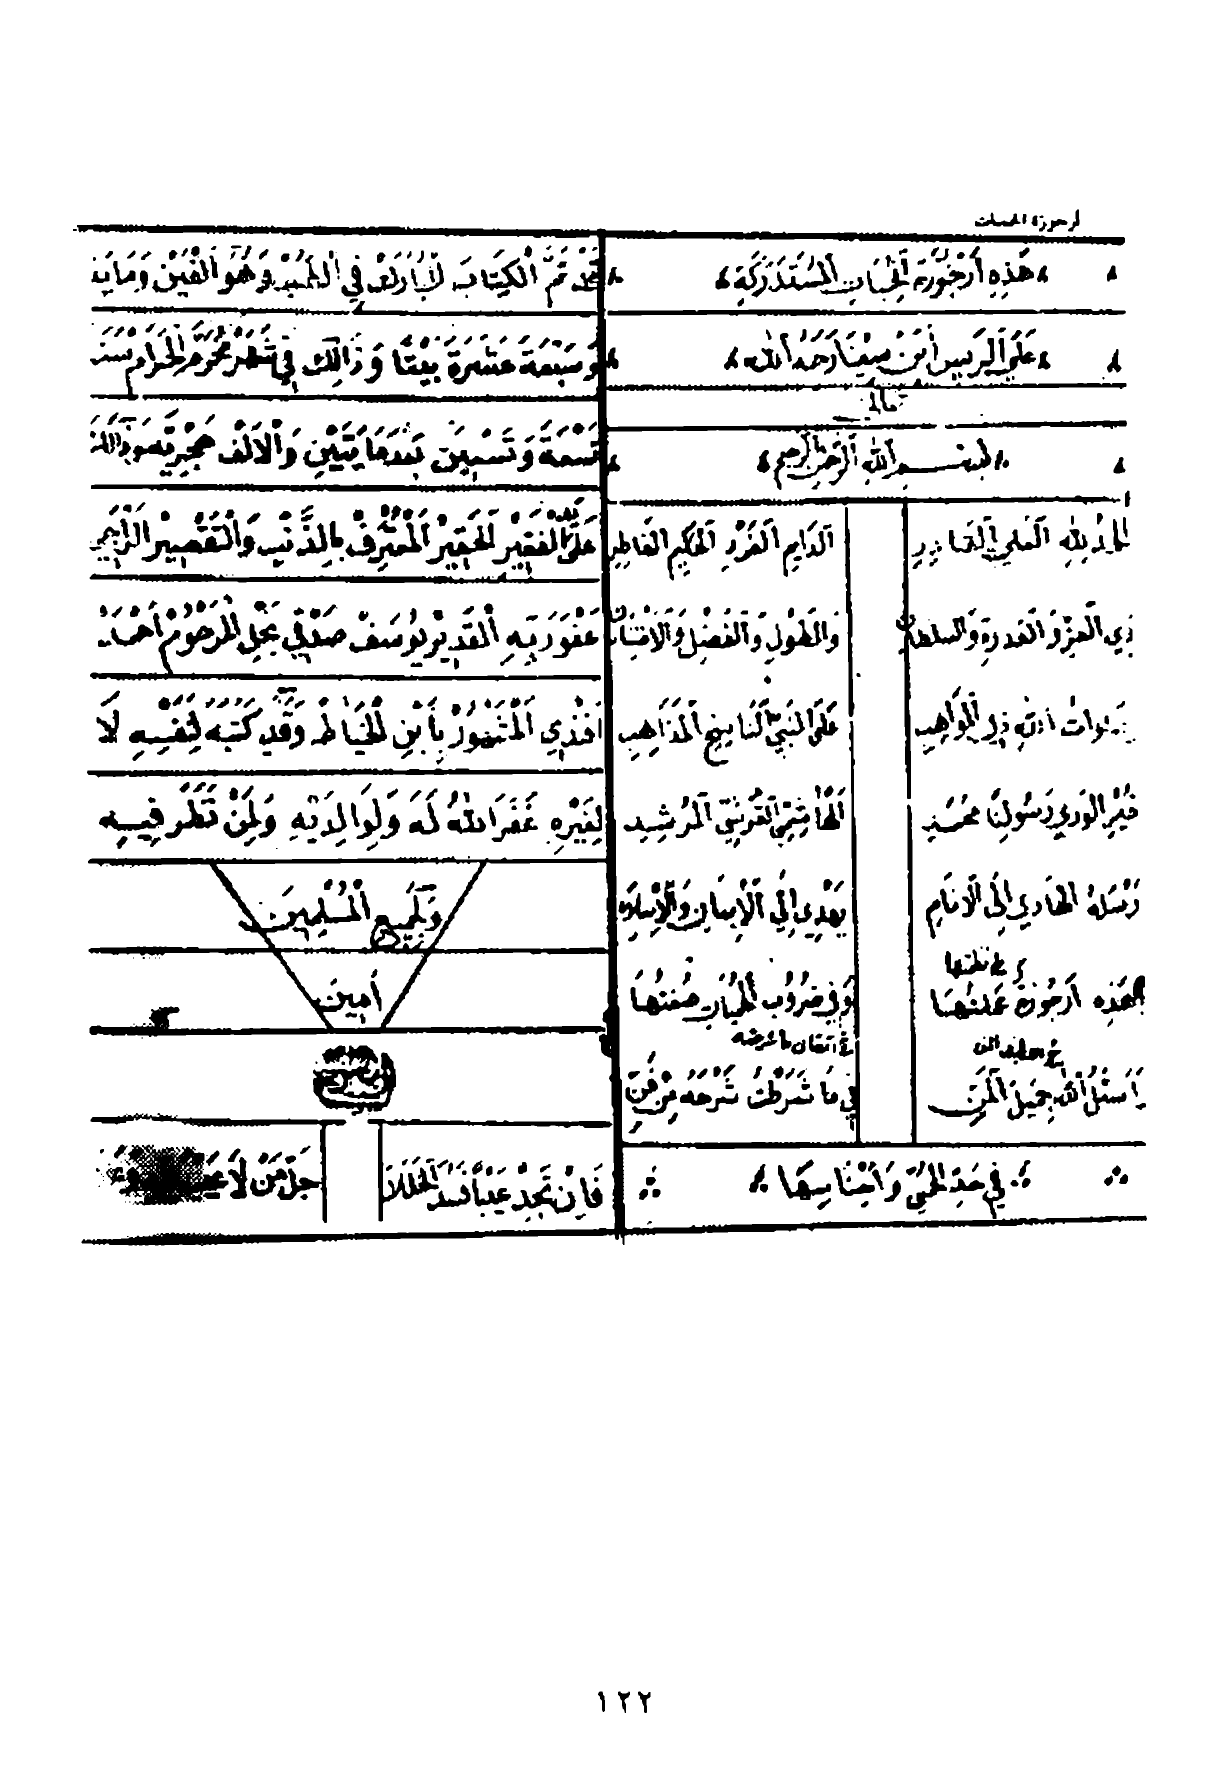 ارجوزة الحميات
هَذِهِ أَرْجُوزَة الحُمَيَاتِ المُسْتَدْرَكَةِ
عَلَى الرَّئِيس ابن سِينَا رَحمَهُ اللَّه
تعالى
بسم الله الرحمن الرحيم
الحمد لِلَّهِ العَلِيِّ القَادِرِ الدَّايِمِ الفَرْدِ الحَكِيمِ الفَاطِرِ
ذِي العِزِّ وَالقُدرَةِ وَالسلطَانِ وَالطَّوْلِ وَالفَضْلِ وَالامْتِنَانِ
صَلَوات اللَّهِ ذِي المَوَاهِبِ عَلَى النَّبِيِّ النَّاسِخِ المَذَاهِبِ
خَيْرِ الوَرَي رَسُولِنَا مُحَمَّدِ الهَاشِمِيِّ القُرَشِيِّ المُرْشِدِ
أَرْسَلَهُ الهَادِي إِلَى الأَنَامِ يَهْدِي إِلَى الأَيمَانِ وَالإِسْلَامِ
نظمتها
وَهَذِهِ أَرْجُوزَةٌ عَمِلْتُهَا وَفِي ضُرُوبِ الحُمَيَاتِ صُغْتُهَا
في اتقان ما غرضه
وَأَسْئَلُ اللَّهَ جَمِيلَ المَنِّ فِي مَا شَرَطْتُ شَرْحَهُ مِنْ فَنِّ
فِي حَدِّ الحُمَّى وَأَجْنَاسِهَا
قَدْ تَمَّ الكِتَابُ المُبَارَكُ فِي الحُمَيَات وَهُوَ أَلْفَيْنِ وَمَايَة
وَسَبْعَةَ عَشْرَةَ بَيْتًا وَذَالِكَ فِي شَهْرِ مُحَرَّمِ الحَرَامِ سَنَة
تِسْعَةَ وَتِسْعِينَ بَعْدَ مَايَتَيْنِ وَالأَلْفِ هِجْرِيَّه
عَلَى يَدِ الفَقِيْرِ الحَقِيْرِ المُعْتَرِفْ بِالذَّنْبِ وَالتَّقْصِيْرِ الرَّاجِي
عَفْوَ رَبِّهِ القَدِيْرِ يُوسُفْ صِدْقِي نَجْلِ المَرْحُوْمْ أَحْمَدْ
أَفَنْدِي المَشْهُوْرْ بِأَبْنِ الخَيَاطْ وَقَدْ كَتَبَهُ لِنَفْسِهِ لَا
لِغَيْرِهِ غَفَرَ اللَّهُ لَهُ وَلِوَالِدَيْهِ وَلِمَنْ نَظَرَ فِيهِ
وَلِجَمِيعِ المُسْلِمِينَ
أَمِينَ
فَإِنْ تَجِدْ عَيْبًا فَسُدَّ الخَلَلَا جَلَّ مَنْ لَا
١٢٢